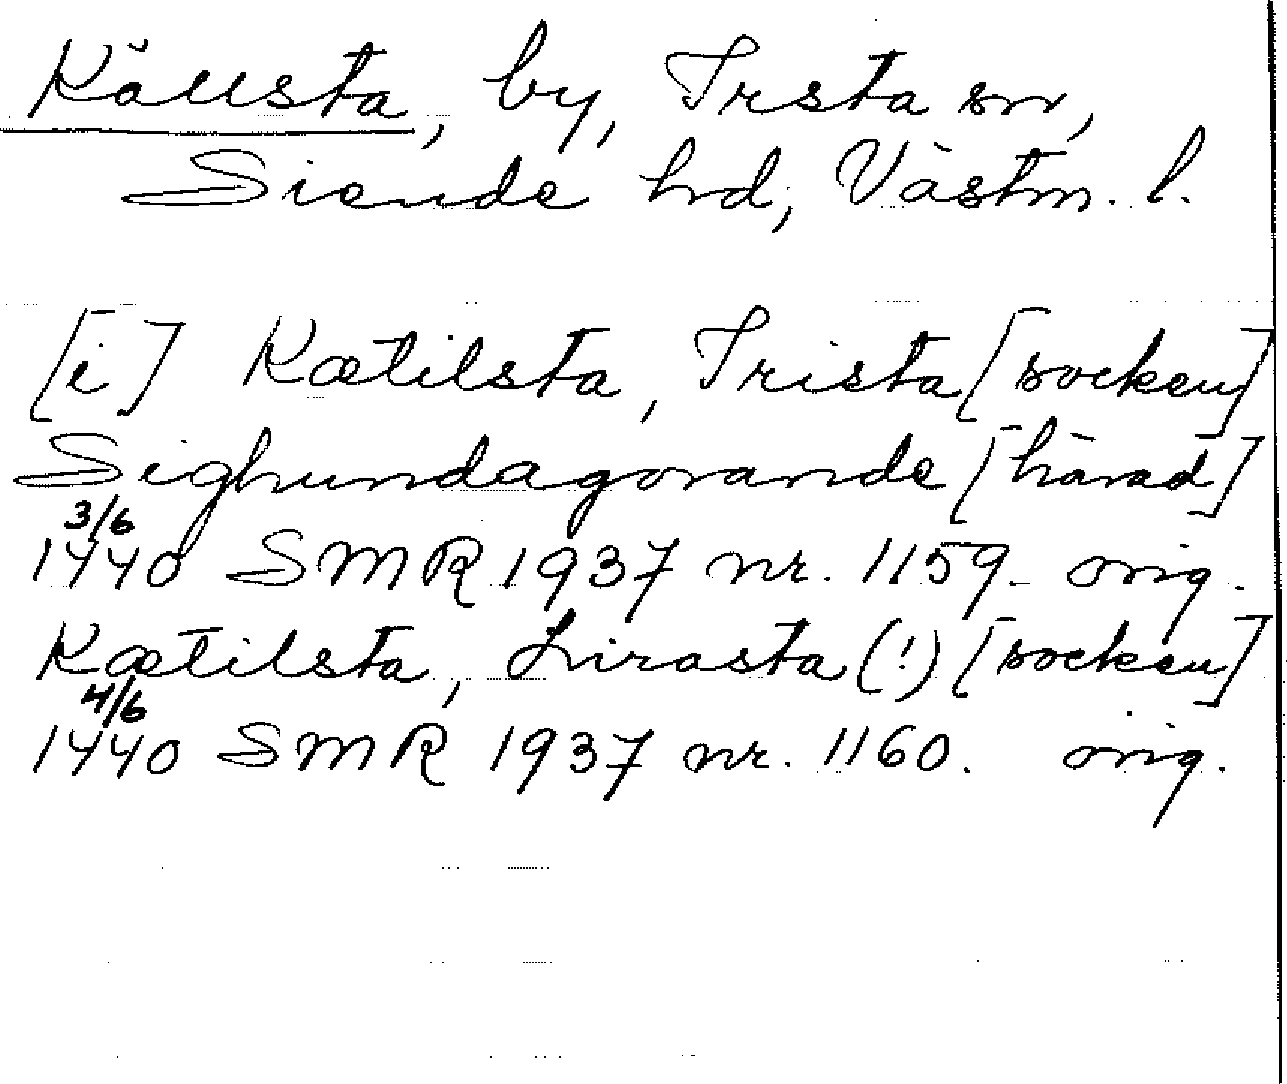 Källsta, by, Irsta sn,
Siende hd, Västm. l.
[i] Kætilsta, Irista [socken]
Sighundagorande [härad]
3/6
1440 SMR 1937 nr. 1159. orig.
Kætilsta, Lirasta (!) [socken]
4/6
1440 SMR 1937 nr. 1160. orig.